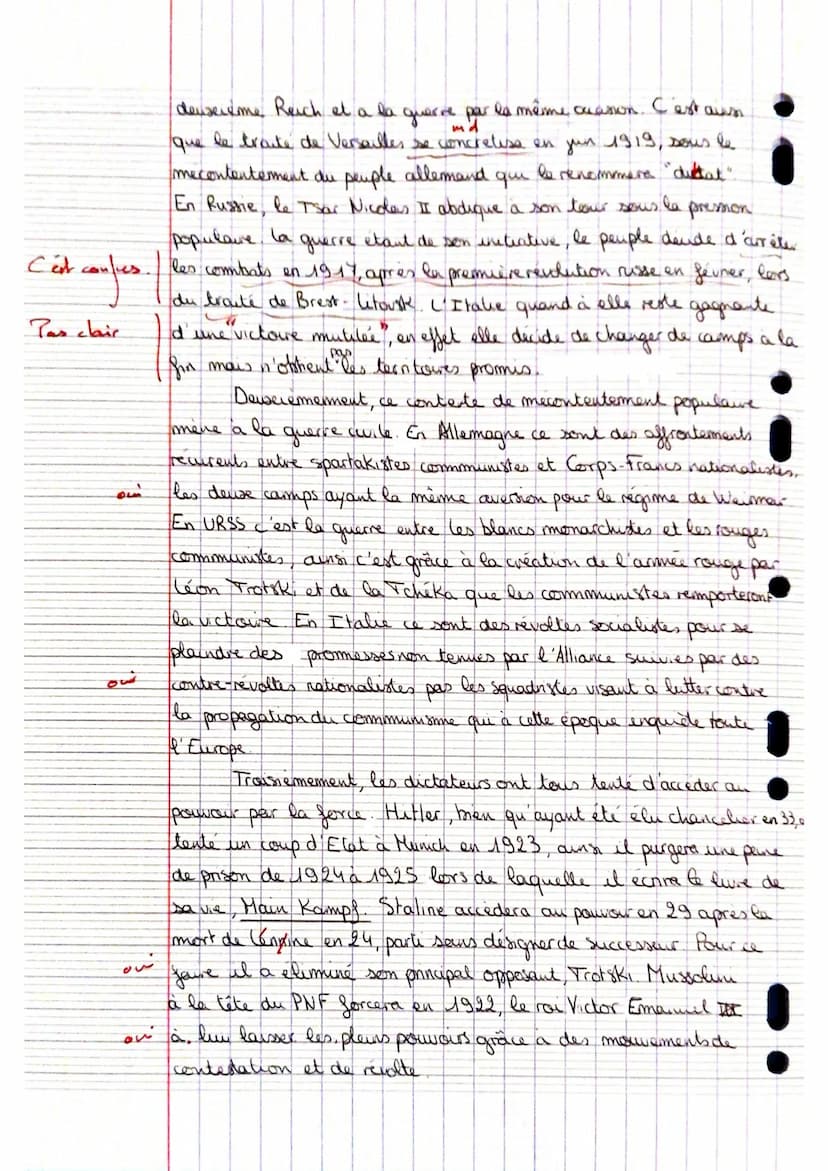 deuxième Reich et a la guerre par la même occasion. C'est ainsi
md
que le traité de Versailles se concretise en juin 1919, sous le
mecontentement du peuple allemand qui le renommera "diktat"
En Russie, le Tsar Nicolas II abdique à son tour sous la pression
populaire. La guerre étant de son initiative, le peuple décide d'arrêter
C'est confus. les combats en 1917, après la première révolution russe en février, lors
du traité de Brest-Litovsk. L'Italie quand à elle reste gagnante
Pas clair d'une "victoire mutilée", en effet elle décide de changer de camps a la
fin mais n'obtient pas les territoires promis.
Deuxièmement, ce contexte de mécontentement populaire
mène à la guerre civile. En Allemagne ce sont des affrontements
récurents entre spartakistes communistes et Corps-Francs nationalistes,
oui les deux camps ayant la même aversion pour le régime de Weimar
En URSS c'est la guerre entre les blancs monarchistes et les rouges
communistes, ainsi c'est grâce à la création de l'armée rouge par
Léon Trotski et de la Tchéka que les communistes remporteront
la victoire. En Italie ce sont des révoltes socialistes, pour se
plaindre des promesses non tenues par l'Alliance suivies par des
oui contre-révoltes nationalistes par les squadristes visant à lutter contre
la propagation du communisme qui à cette époque inquiète toute
l'Europe.
Troisièmement, les dictateurs ont tous tenté d'acceder au
pouvoir par la force. Hitler, bien qu'ayant été élu chancelier en 33, a
tenté un coup d'Etat à Munich en 1923, ainsi il purgera une peine
de prison de 1924 à 1925 lors de laquelle il écrira le livre de
sa vie, Main Kampf. Staline accèdera au pouvoir en 29 après la
mort de Lénine en 24, parti sans désigner de successeur. Pour ce
oui faire il a éliminé son principal opposant, Trotski. Mussolini
à la tête du PNF forcera en 1922, le roi Victor Emanuel III
oui à lui laisser les pleins pouvoirs grâce à des mouvements de
contestation et de révolte.